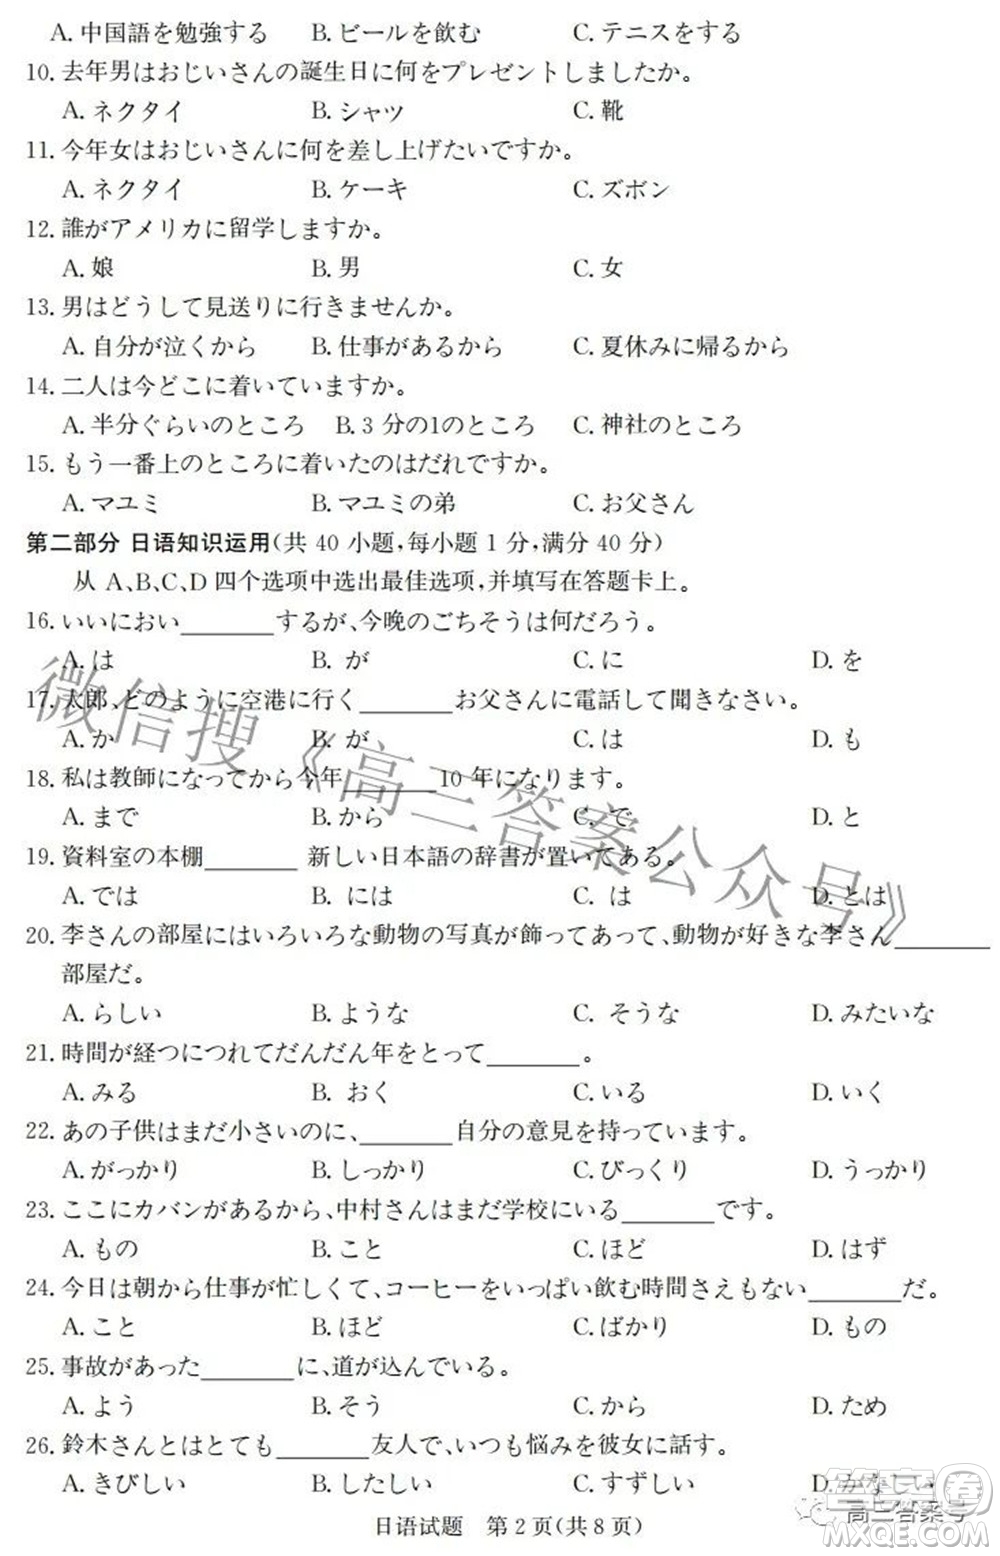 A.中国語を勉強する B.ビールを飲む C.テニスをする
10.去年男はおじいさんの誕生日に何をプレゼントしましたか。
A.ネクタイ B.シャツ C.靴
11.今年女はおじいさんに何を差し上げたいですか。
A.ネクタイ B.ケーキ C.ズボン
12.誰がアメリカに留学しますか。
A.娘 B.男 C.女
13.男はどうして見送りに行きませんか。
A.自分が泣くから B.仕事があるから C.夏休みに帰るから
14.二人は今どこに着いていますか。
A.半分ぐらいのところ B.3分の1のところ C.神社のところ
15.もう一番上のところに着いたのはだれですか。
A.マユミ B.マユミの弟 C.お父さん
第二部分 日语知识运用(共 40 小题,每小题 1 分,满分 40 分)
从 A、B、C、D 四个选项中选出最佳选项,并填写在答题卡上。
16.いいにおい______するが、今晩のごちそうは何だろう。
A.は B.が C.に D.を
17.太郎、どのように空港に行く______お父さんに電話して聞きなさい。
A.か B.が C.は D.も
18.私は教師になってから今年______10 年になります。
A.まで B.から C.で D.と
19.資料室の本棚______新しい日本語の辞書が置いてある。
A.では B.には C.は D.とは
20.李さんの部屋にはいろいろな動物の写真が飾ってあって、動物が好きな李さん______
部屋だ。
A.らしい B.ような C.そうな D.みたいな
21.時間が経つにつれてだんだん年をとって______。
A.みる B.おく C.いる D.いく
22.あの子供はまだ小さいのに、______自分の意見を持っています。
A.がっかり B.しっかり C.びっくり D.うっかり
23.ここにカバンがあるから、中村さんはまだ学校にいる______です。
A.もの B.こと C.ほど D.はず
24.今日は朝から仕事が忙しくて、コーヒーをいっぱい飲む時間さえもない______だ。
A.こと B.ほど C.ばかり D.もの
25.事故があった______に、道が込んでいる。
A.よう B.そう C.から D.ため
26.鈴木さんとはとても______友人で、いつも悩みを彼女に話す。
A.きびしい B.したしい C.すずしい D.かなしい
日语试题 第 2 页(共 8 页)
微信搜《高三答案公众号》
高三答案号
答案卷
MXQE.COM